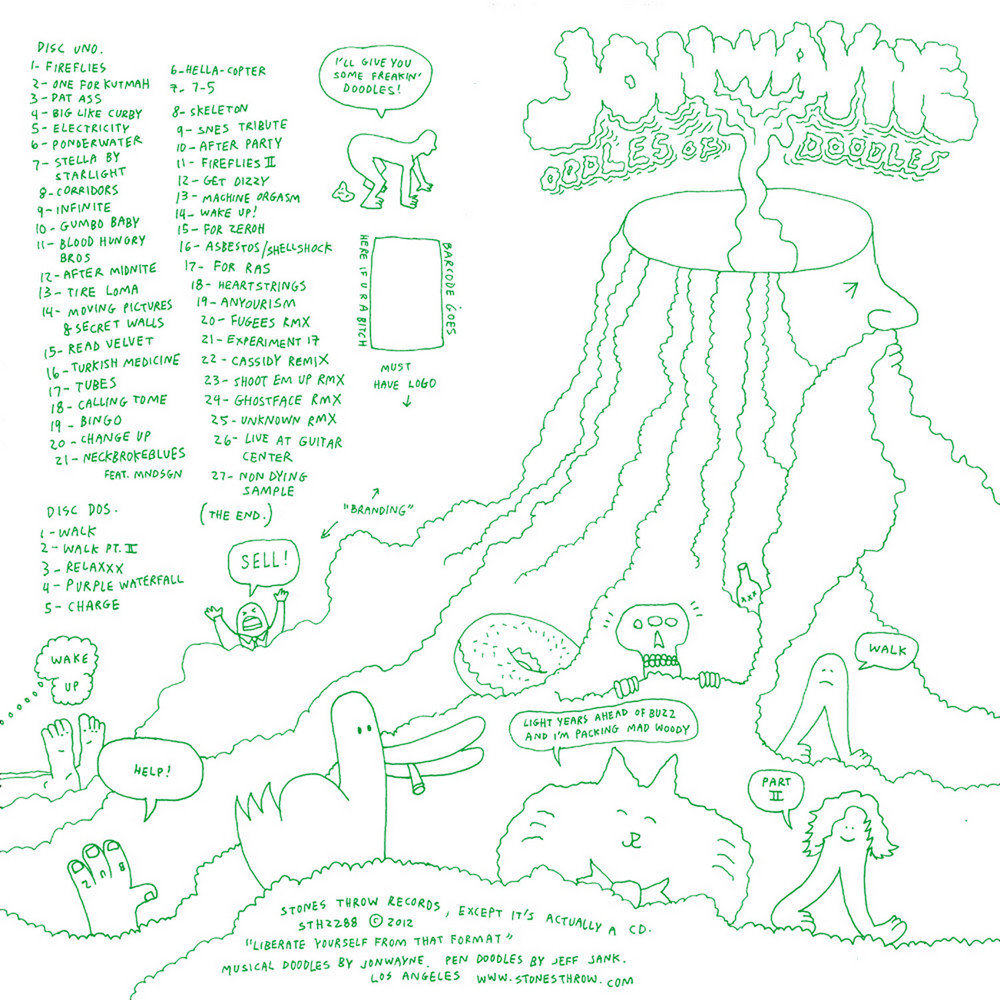 DISC UNO.
1- FIREFLIES
2- ONE FOR KUTMAH
3- PAT ASS
4- BIG LIKE CURBY
5- ELECTRICITY
6- PONDERWATER
7- STELLA BY
STARLIGHT
8- CORRIDORS
9- INFINITE
10- GUMBO BABY
11- BLOOD HUNGRY
BROS
12- AFTER MIDNITE
13- TIRE LOMA
14- MOVING PICTURES
& SECRET WALLS
15- READ VELVET
16- TURKISH MEDICINE
17- TUBES
18- CALLING TOME
19- BINGO
20- CHANGE UP
21- NECKBROKEBLUES
FEAT. MNDSGN
DISC DOS.
1- WALK
2- WALK PT. II
3- RELAXXX
4- PURPLE WATERFALL
5- CHARGE
6- HELLA-COPTER
7- 7-5
8- SKELETON
9- SNES TRIBUTE
10- AFTER PARTY
11- FIREFLIES II
12- GET DIZZY
13- MACHINE ORGASM
14- WAKE UP!
15- FOR ZEROH
16- ASBESTOS/SHELLSHOCK
17- FOR RAS
18- HEARTSTRINGS
19- ANYOURISM
20- FUGEES RMX
21- EXPERIMENT 17
22- CASSIDY REMIX
23- SHOOT EM UP RMX
24- GHOSTFACE RMX
25- UNKNOWN RMX
26- LIVE AT GUITAR
CENTER
27- NON DYING
SAMPLE
(THE END.)
I'LL GIVE YOU
SOME FREAKIN'
DOODLES!
BARCODE GOES
HERE IF U R A BITCH
MUST
HAVE LOGO
"BRANDING"
JONWAYNE
OODLES OF DOODLES
SELL!
WAKE
UP
HELP!
2 N 8
XXX
WALK
LIGHT YEARS AHEAD OF BUZZ
AND I'M PACKING MAD WOODY
PART
II
STONES THROW RECORDS, EXCEPT IT'S ACTUALLY A CD.
STH2288 © 2012
"LIBERATE YOURSELF FROM THAT FORMAT"
MUSICAL DOODLES BY JONWAYNE. PEN DOODLES BY JEFF JANK.
LOS ANGELES WWW.STONESTHROW.COM